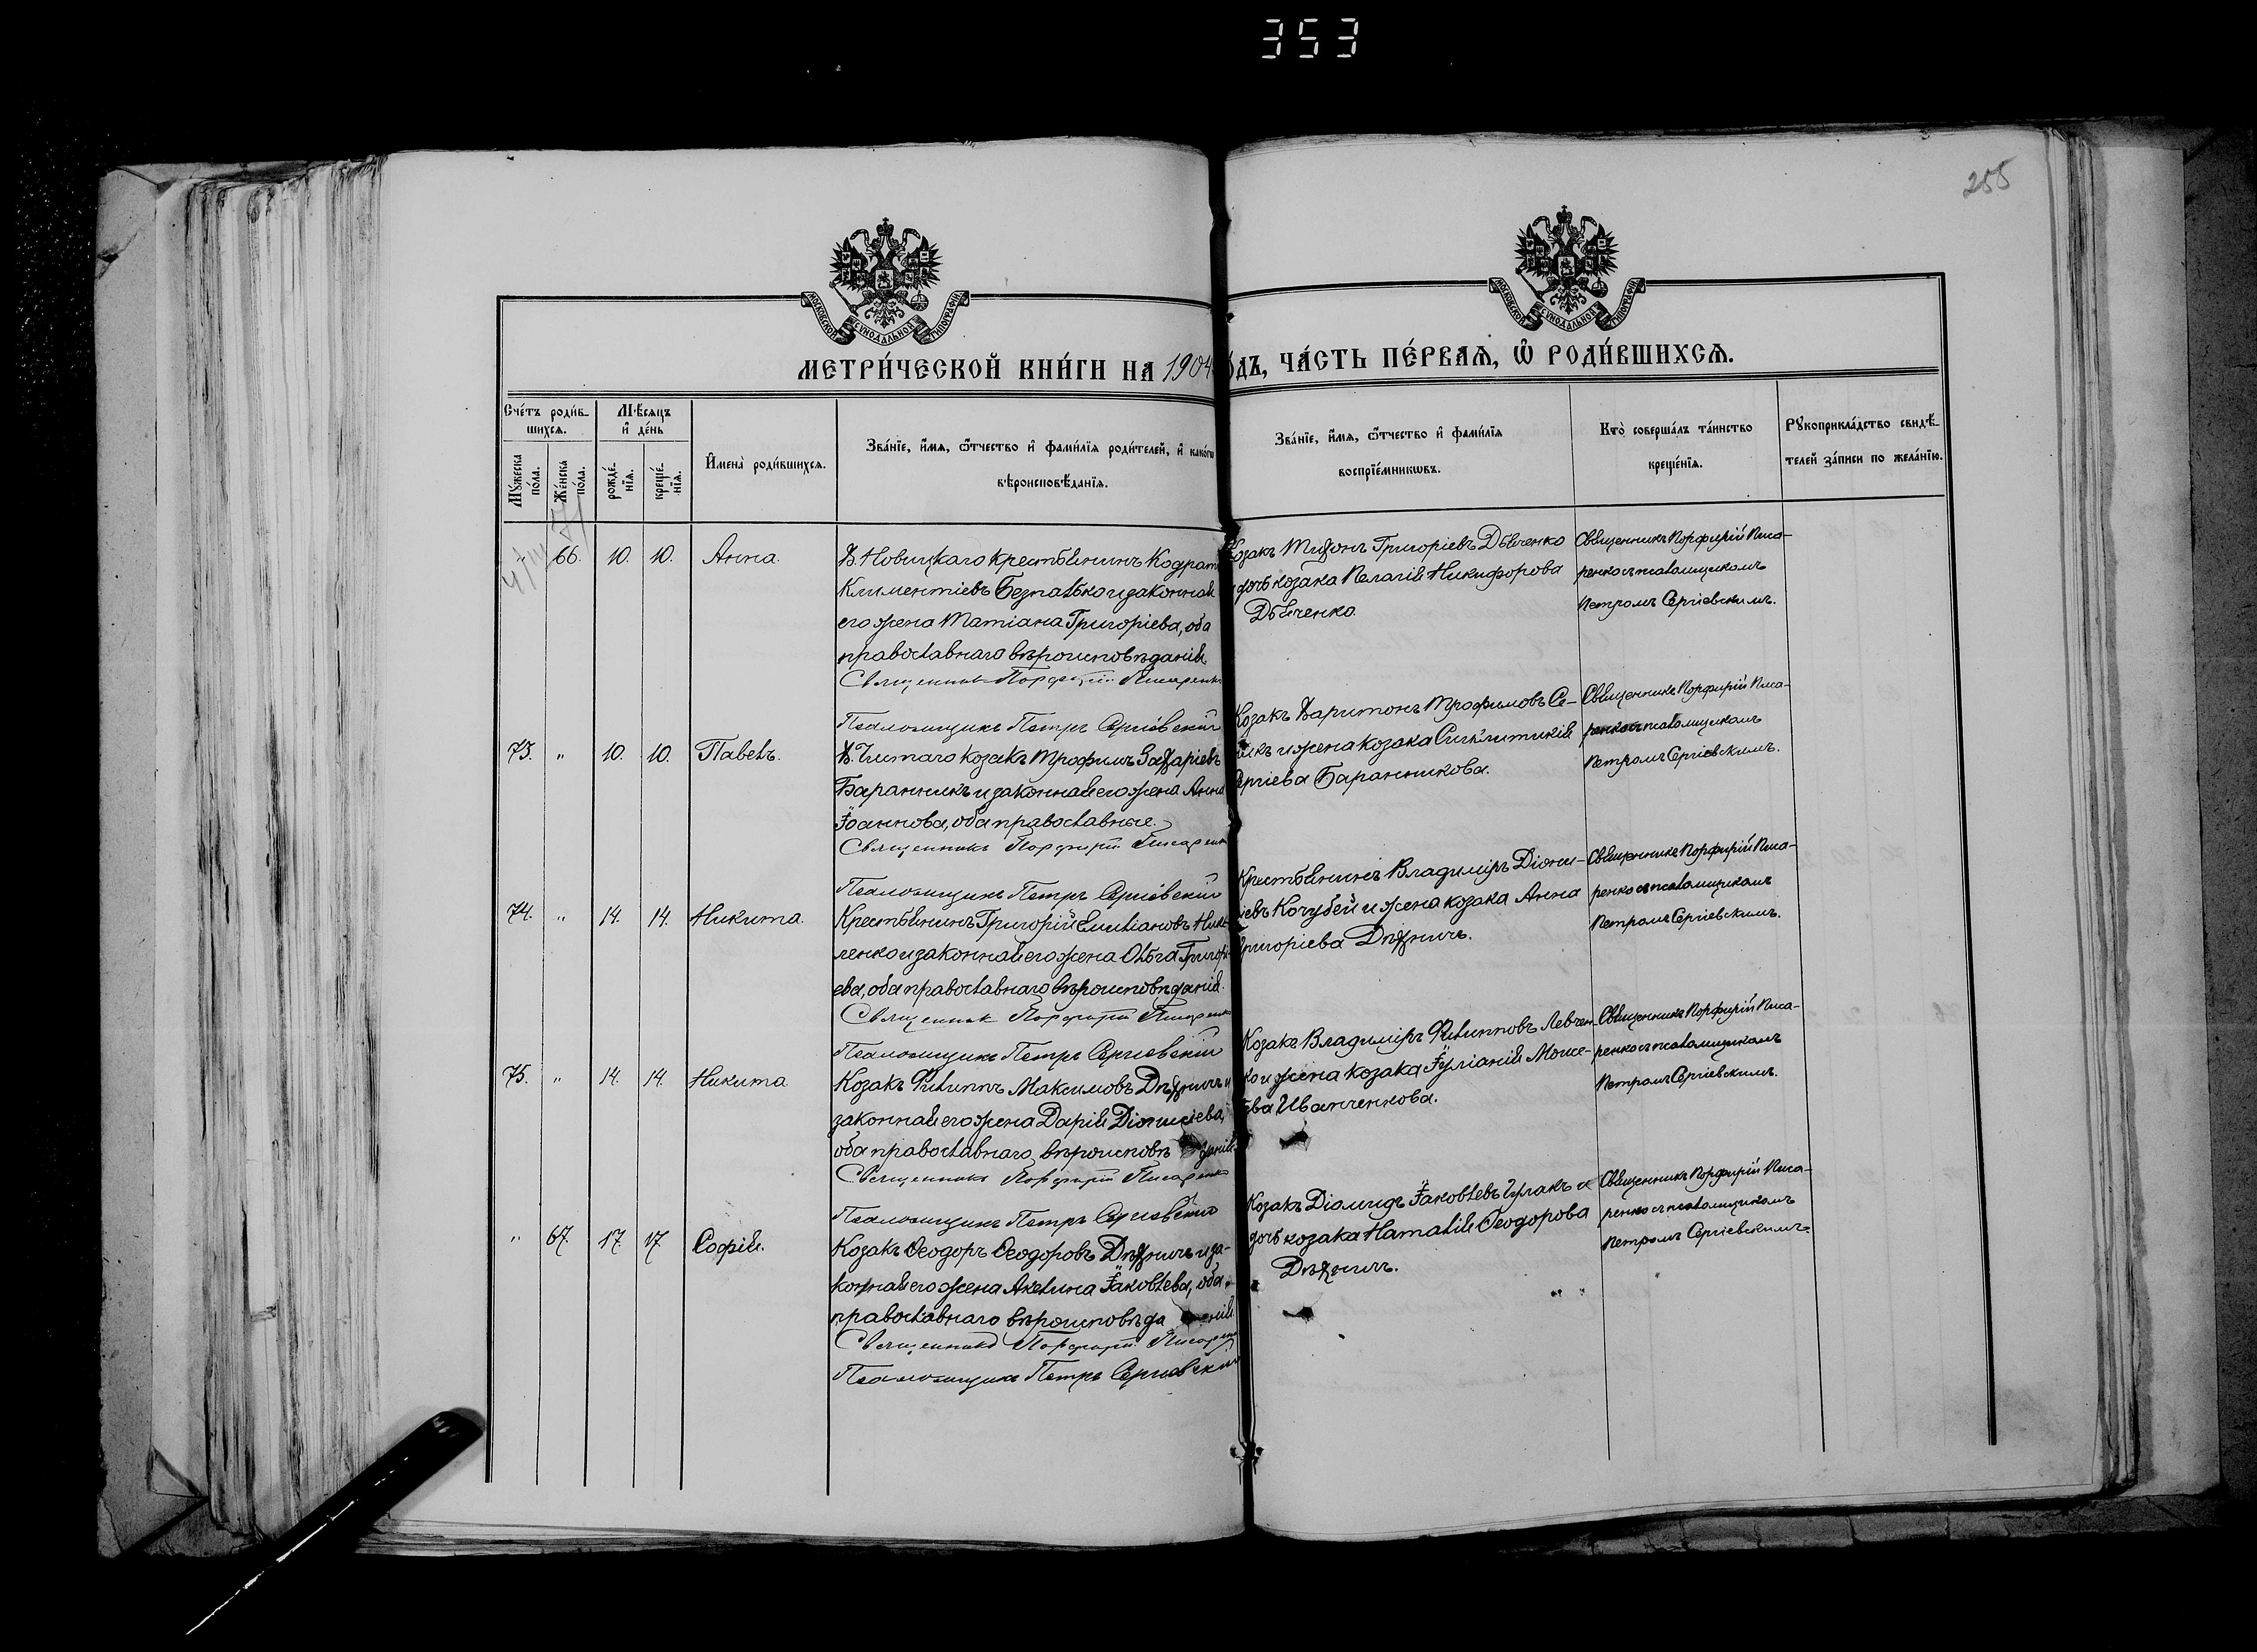 353
255
МОСКОВСКОЙ СѴНОДАЛЬНОЙ ТИПОГРАФІИ
МОСКОВСКОЙ СѴНОДАЛЬНОЙ ТИПОГРАФІИ
МЕТРИ́ЧЕСКОЙ КНИ́ГИ НА 1904 ГО́ДЪ, ЧА́СТЬ ПЕ́РВАѦ, Ѡ҆ РОДИ́ВШИХСѦ.
Сче́тъ роди́в-
шихсѧ.
Мꙋ́жеска по́ла.
Же́нска по́ла.
Мѣ́сѧцъ
и҆ де́нь
рожде́-
нїѧ.
креще́-
нїѧ.
И҆мена̀ роди́вшихсѧ.
Зва́нїе, и҆́мѧ, ѻ҆́тчество и҆ фами́лїѧ роди́телей, и҆ како́гѡ
вѣроисповѣ́данїѧ.
Зва́нїе, и҆́мѧ, ѻ҆́тчество и҆ фами́лїѧ
воспрїе́мникѡвъ.
Кто̀ соверша́лъ та́инство
креще́нїѧ.
Рꙋкоприкла́дство свидѣ́-
телей за́писи по жела́нїю.
" 66. 10. 10. Анна.
Х. Новицкаго крестьянинъ Кодратъ
Климентіевъ Безпалько и законная
его жена Татіана Григоріева, оба
православнаго вѣроисповѣданія.
Священникъ Порфирій Писаренко
Псаломщикъ Петръ Сергіевскій
Козакъ Тихонъ Григоріевъ Дьяченко
дочь козака Пелагія Никифорова
Дьяченко.
Священникъ Порфирій Писа-
ренко съ псаломщикомъ
Петромъ Сергіевскимъ.
73. " 10. 10. Павелъ.
Х. Чистаго козакъ Трофимъ Захаріевъ
Баранникъ и законная его жена Анна
Іоаннова, оба православные.
Священникъ Порфирій Писаренко
Псаломщикъ Петръ Сергіевскій
Козакъ Харитонъ Трофимовъ Се-
и жена козака Сигклитикія
Сергіева Баранникова.
Священникъ Порфирій Писа-
ренко съ псаломщикомъ
Петромъ Сергіевскимъ.
74. " 14. 14. Никита.
Крестьянинъ Григорій Емиліановъ
ленко и законная его жена Ольга Григорі-
ева, оба православнаго вѣроисповѣданія.
Священникъ Порфирій Писаренко
Псаломщикъ Петръ Сергіевскій
Крестьянинъ Владиміръ Діони-
сіевъ Кочубей и жена козака Анна
Григоріева Дѣхничъ.
Священникъ Порфирій Писа-
ренко съ псаломщикомъ
Петромъ Сергіевскимъ.
75. " 14. 14. Никита
Козакъ Филиппъ Максимовъ Дѣхничъ и
законная его жена Дарія Діонисіева,
оба православнаго вѣроисповѣданія.
Священникъ Порфирій Писаренко
Псаломщикъ Петръ Сергіевскій
Козакъ Владиміръ Филипповъ Левчен-
ко и жена козака Іуліанія Моисе-
ева Иванченкова.
Священникъ Порфирій Писа-
ренко съ псаломщикомъ
Петромъ Сергіевскимъ.
" 67. 17. 17. Софія.
Козакъ Ѳеодоръ Ѳеодоровъ Дѣхничъ и за-
конная его жена Акилина Іаковлева, оба
православнаго вѣроисповѣданія.
Священникъ Порфирій Писаренко
Псаломщикъ Петръ Сергіевскій
Козакъ Діомидъ Іаковлевъ Гулакъ и
дочь козака Наталія Ѳеодорова
Дѣхничъ.
Священникъ Порфирій Писа-
ренко съ псаломщикомъ
Петромъ Сергіевскимъ.